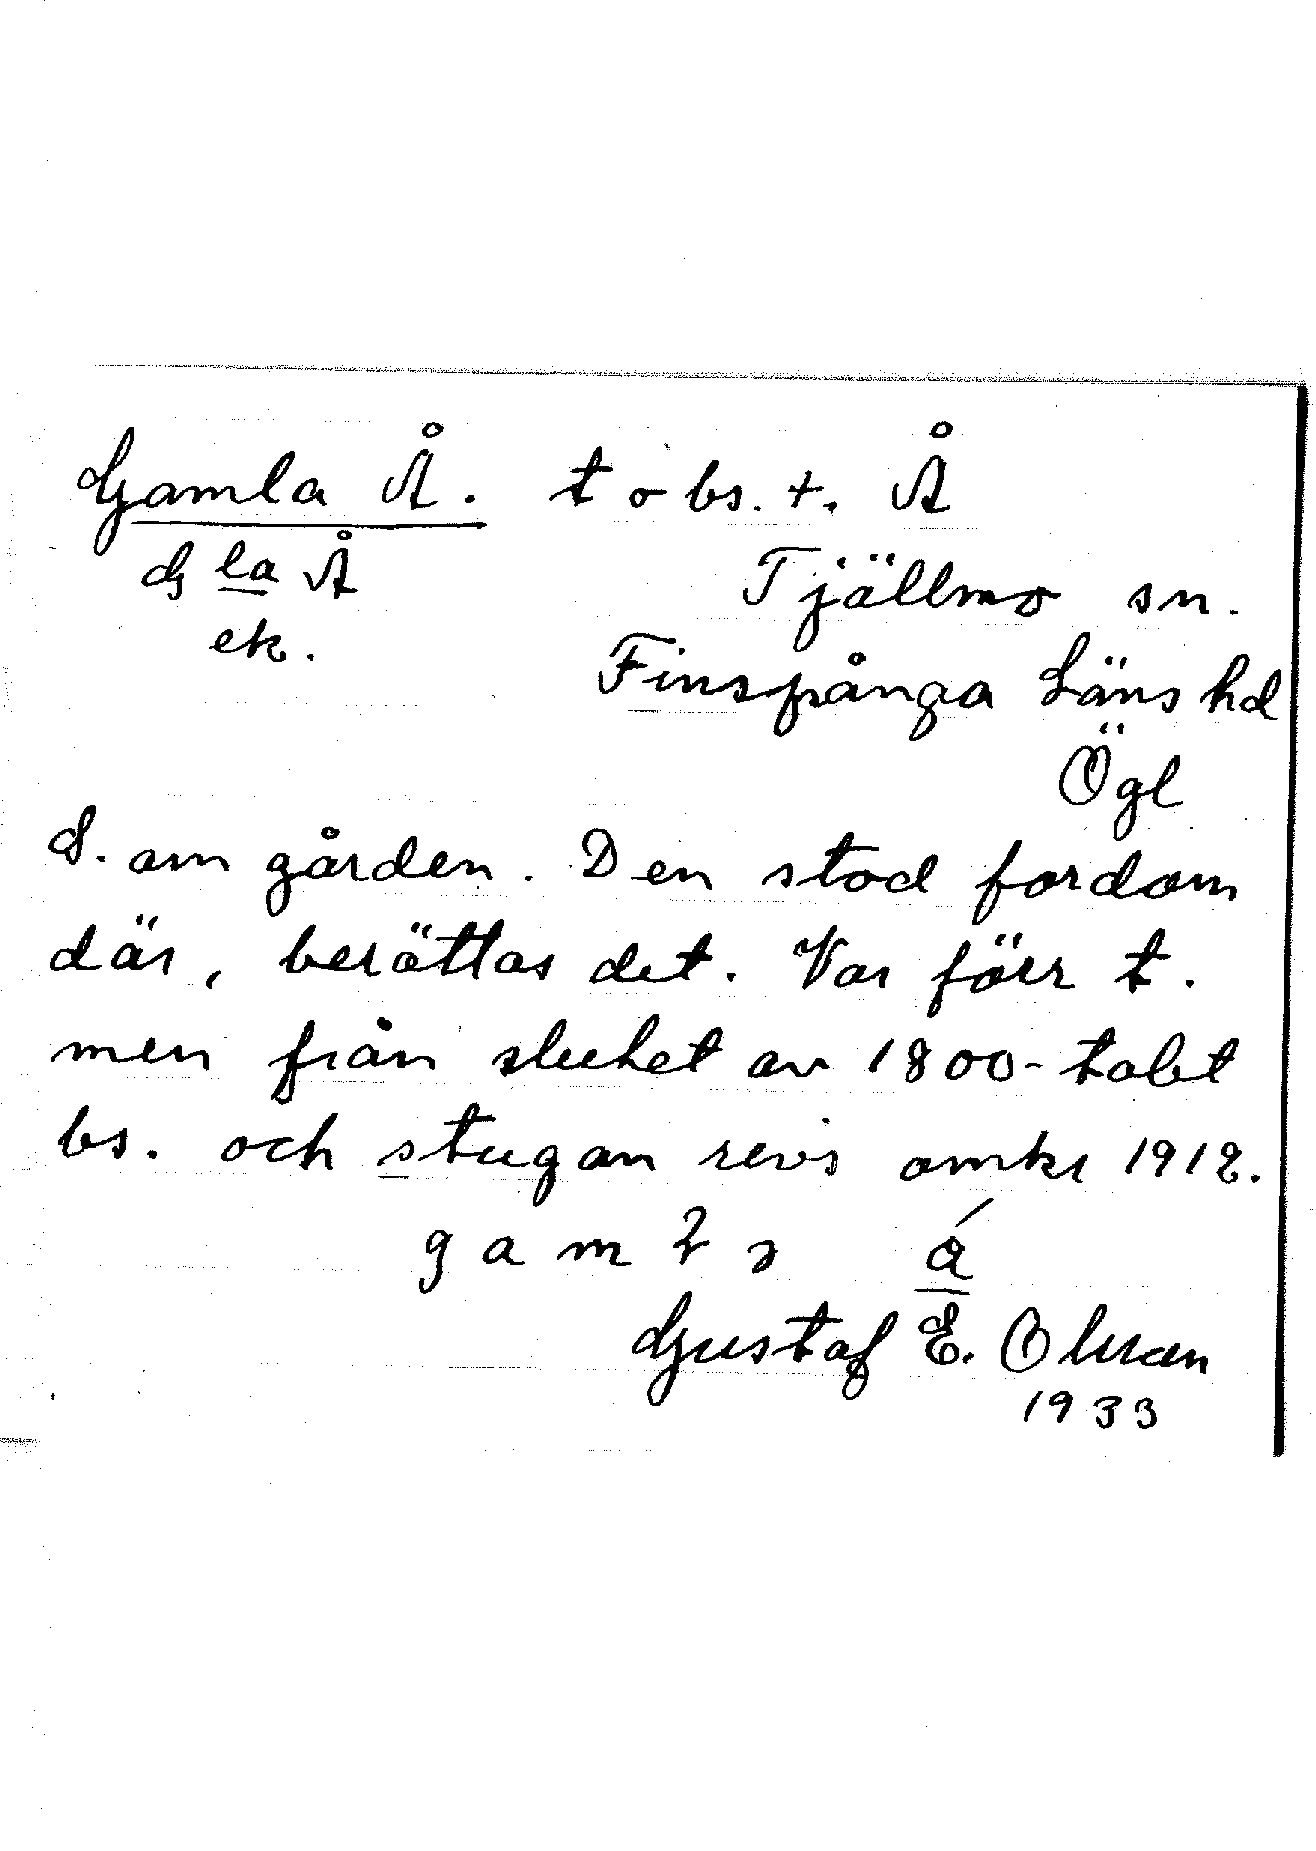 Gamla Å. t o bs. †. Å
G la Å
ek.
Tjällmo sn.
Finspånga Läns hd
Ögl
S. om gården. Den stod fordom
där, berättas det. Var förr t.
men från slutet av 1800-talet
bs. och stugan revs omkr 1912.
g a m ɫ ɔ á̊
Gustaf E. Olsson
1933